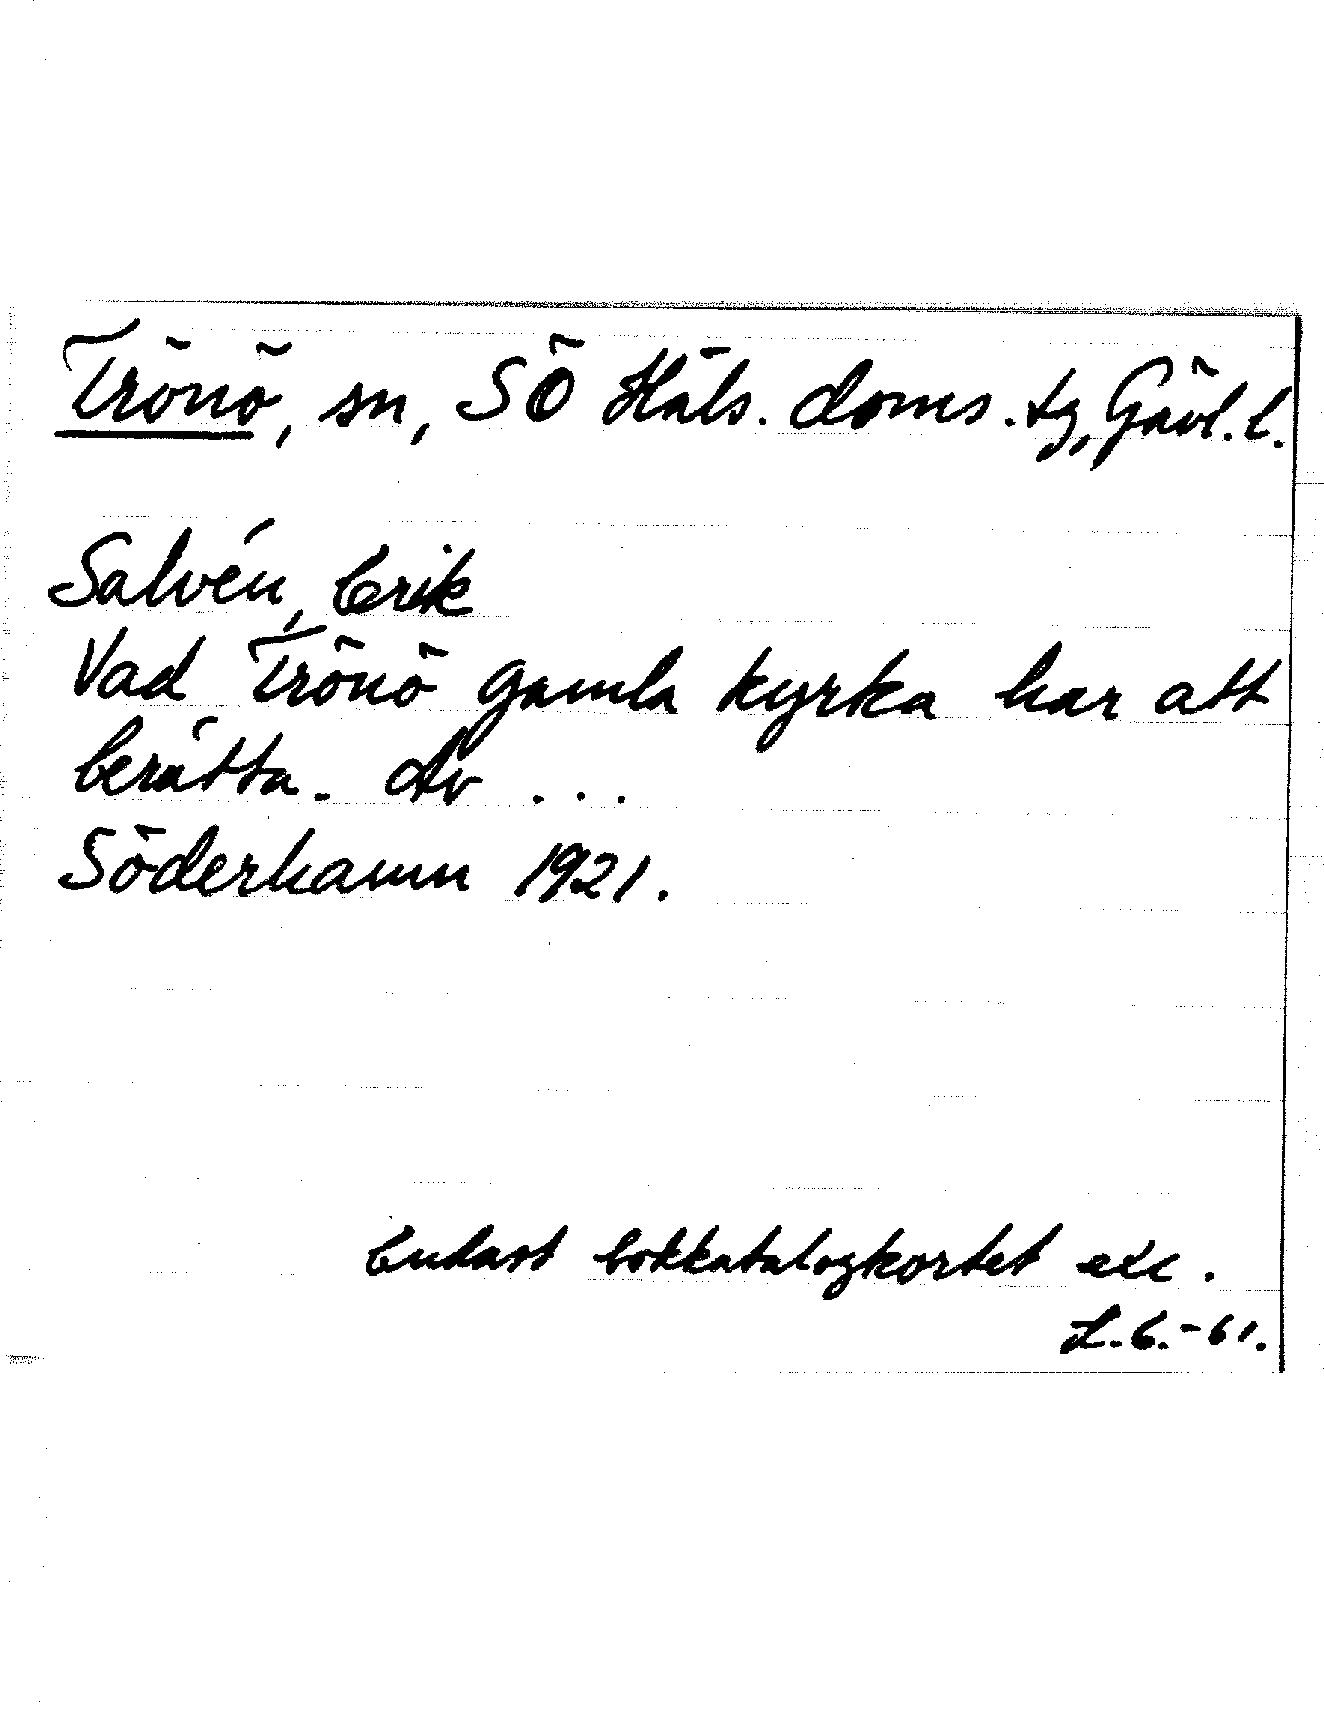 Trönö, sn, SÖ Häls. doms. tg, Gävl. l.
Salvén, Erik
Vad Trönö gamla kyrka har att
berätta. Av ...
Söderhamn 1921.
Endast bokkatalogkortet exc.
L. 6.-61.